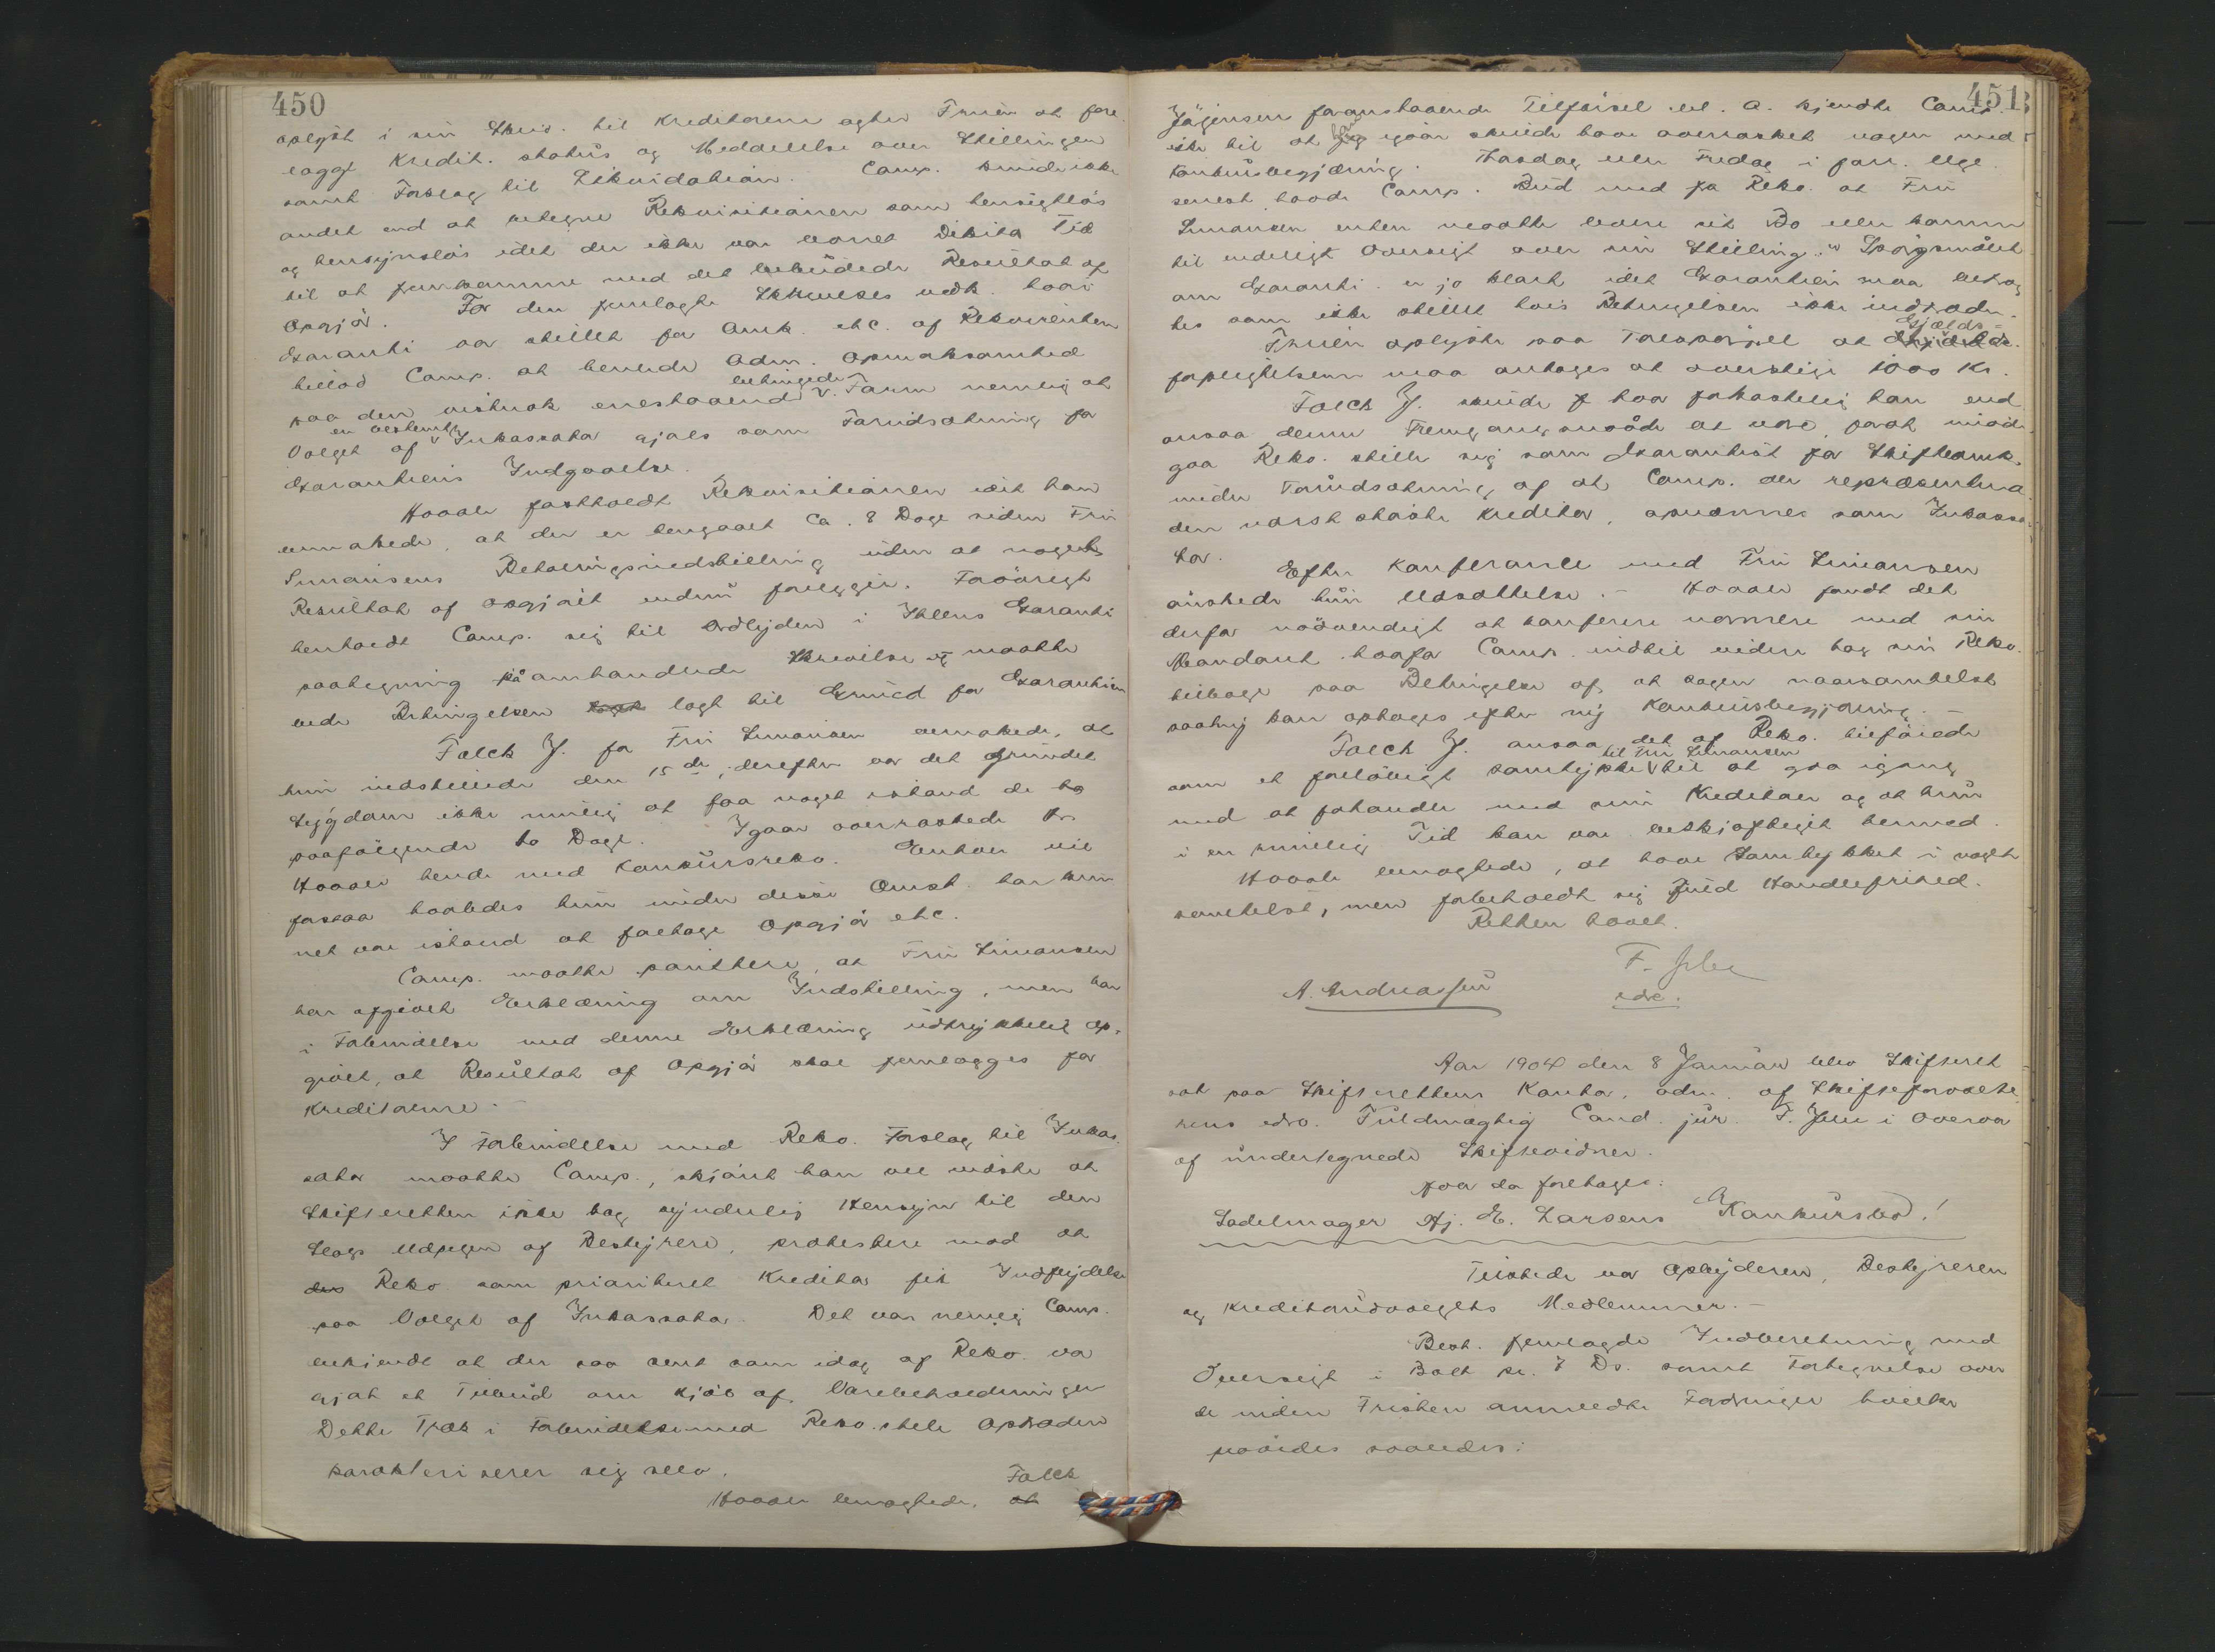 450
oplyst i sin Skriv. til Kreditorerne agter Fruen at fore-
lægge Kredit. status og Meddelelse over Stillingen
samt Forslag til Likvidation. Comp. kunde ikke
andet end at betegne Rekvisitionen som hensigtløs
og hensynsløs idet der ikke var levnet Debitor Tid
til at fremkomme med det bebudede Resultat af
Opgjør. For den fremlagte Skrivelses vedk. hvori
Garanti var stillet for Omk. etc. af Rekvirenten
tillod Comp. at henlede Adm. Opmærksomhed
paa den vistnok enestaaende betingede Form nemlig at
Valget af en bestemt Inkassator gjøres som Forudsætning for
Garantiens Indgaaelse.
Haaøe fastholdt Rekvisitionen idet han
bemærkede, at der er hengaaet Ca. 8 Dage siden Fru
Simonsens Betalingsindstilling uden at noget
Resultat af Opgjøret endnu foreligger. Forøvrigt
henholdt Comp. sig til Ordlyden i Garanti
paategning på omhandlede Skrivelse og maatte
lagt til Grund for Garantien
Falck Y. for Fru Simonsen bemærkede, at
hun indstillede den 15de; derefter var det Grundet
Sygdom ikke mulig at faa noget istand de to
paafølgende to Dage. Igaar overraskede Hr.
hende med Konkursreko. Enhver vil
forstaa hvorledes hun under disse Omst. har kun-
net være istand at foretage Opgjør etc.
Comp. maatte paaitere, at Fru Simonsen
har afgivet Erklæring om Indstilling, men har
i Forbindelse med denne Erklæring udtrykkelig op-
givet, at Resultat af Opgjør skal fremlægges for
Kreditorerne.
I Forbindelse med Reko. Forslag til Inkas-
sator maatte Comp., skjønt han vel vidste at
Skifteretten ikke tog synderlig Hensyn til den
Slags Udpegen af Bestyrere, protestere mod at
Reko som prioriteret Kreditor fik Indflydelse
paa Valget af Inkassator. Det var nemlig Comp.
bekjendt at der saa sent som idag af Reko. var
gjort et Tilbud om Kjøb af Varebeholdningen
Dette Træk i Forbindelse med Reko. hele Optræden
karakteriserer sig selv.
bemærkede, at Falck
451
Jørgensen foranstaaende Tilførsel bl. a. kjendte Comp.
ikke til at han igaar skulde have overrasket nogen med
Konkursbegjæring. Torsdag eller Fredag i forr. Uge
senest havde Comp. Bud med fra Reko. at Fru
Simonsen enten maatte levere sit Bo eller komme
til endeligt Oversigt over sin Stilling. Spørgsmålet
om Garanti er jo klart idet Garantien maa betrag-
tes som ikke stillet hvis Betingelsen ikke indtræder.
Fruen oplyste paa Forespørsel at Gjælds-
forpligtelsen maa antages at overstige 1000 Kr.
Falck Y. vilde hvor forkastelig han end
ansaa denne Fremgangsmåde at være, for at imøde-
gaa Reko. stille sig som Garantist for Skifteomk.
under Forudsætning af at Comp. der repræsenterer
den næst største Kreditor, opnævnes som Inkassa-
tor.
Efter Konferanse med Fru Simonsen
ønskede hun Udsættelse. – fandt det
derfor nødvendigt at konferere nærmere med sin
Mandant hvorfor Comp. indtil videre tog sin Reko.
tilbage paa Betingelse af, at sagen naarsomhelst
paany kan optages efter ny Konkursbegjæring. –
Falck Y. ansaa det af Reko. tilførte
som et foreløbigt samtykke til Fru Simonsen til at gaa igang
med at forhandle med sine Kreditorer og at hun
i en rimelig Tid kan være beskjæftiget hermed.
benægtede, at have Samtykket i noget
somhelst, men forbeholdt sig fuld Handlefrihed.
Retten hævet.
A. Andreassen
edv.
Aar 1904 den 8 Januar blev Skifteret
sat paa Skifterettens Kontor, adm. af Skifteforvalte-
rens edsv. Fuldmægtig Cand. jur. F. i Overvær
af undertegnede Skiftevidner.
Hvor da foretages:
Sadelmager Hj. E. Larsens Konkursbo!
Tilstede var Opbyderen, Bestyreren
og Kreditorudvalgets Medlemmer. –
Best. fremlagde Indberetning med
Oversigt i Boet pr. 7 Ds. samt Fortegnelse over
de inden Fristen anmeldte Fordringer hvilke
saaledes: